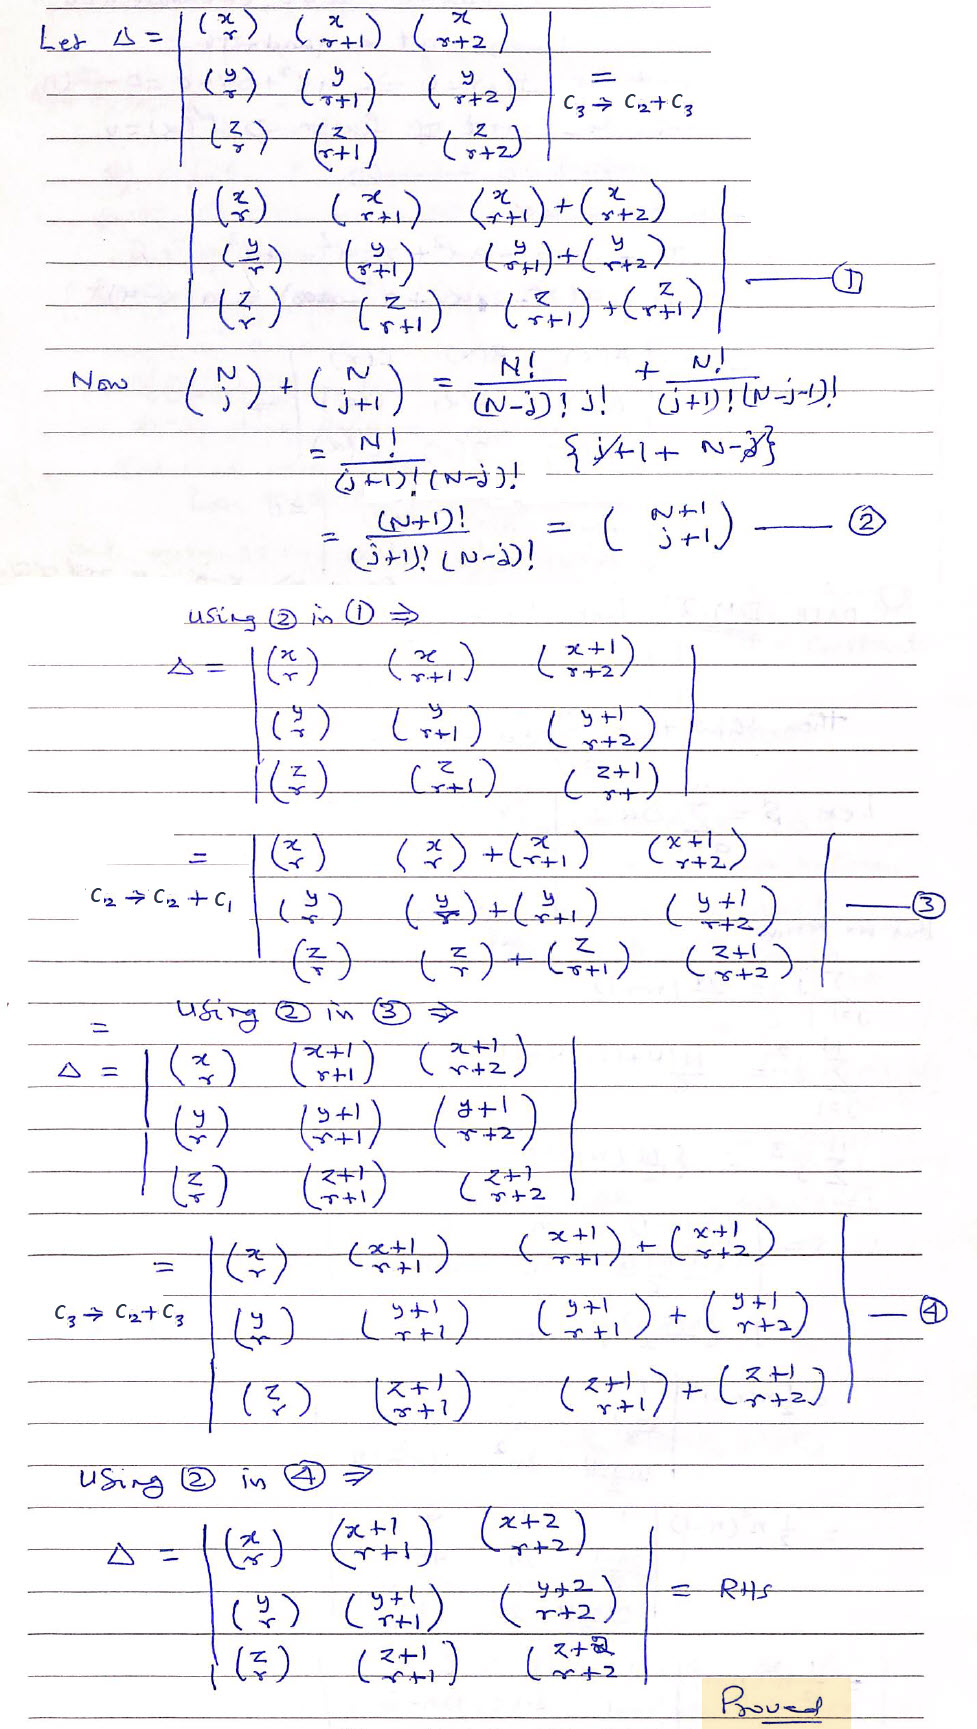 Let Δ = | (x r) (x r+1) (x r+2) |
| (y r) (y r+1) (y r+2) | = C3 → C2 + C3
| (z r) (z r+1) (z r+2) |
| (x r) (x r+1) (x r+1) + (x r+2) |
| (y r) (y r+1) (y r+1) + (y r+2) | —— ①
| (z r) (z r+1) (z r+1) + (z r+1) |
Now (N j) + (N j+1) = N! / (N-j)! j! + N! / (j+1)! (N-j-1)!
= N! / (j+1)! (N-j)! {j+1 + N-j}
= (N+1)! / (j+1)! (N-j)! = (N+1 j+1) —— ②
using ② in ① ⇒
Δ = | (x r) (x r+1) (x+1 r+2) |
| (y r) (y r+1) (y+1 r+2) |
| (z r) (z r+1) (z+1 r+) |
= | (x r) (x r) + (x r+1) (x+1 r+2) |
C2 → C2 + C1 | (y r) (y r) + (y r+1) (y+1 r+2) | —— ③
| (z r) (z r) + (z r+1) (z+1 r+2) |
= using ② in ③ ⇒
Δ = | (x r) (x+1 r+1) (x+1 r+2) |
| (y r) (y+1 r+1) (y+1 r+2) |
| (z r) (z+1 r+1) (z+1 r+2 |
= | (x r) (x+1 r+1) (x+1 r+1) + (x+1 r+2) |
C3 → C2 + C3 | (y r) (y+1 r+1) (y+1 r+1) + (y+1 r+2) | — ④
| (z r) (z+1 r+1) (z+1 r+1) + (z+1 r+2) |
using ② in ④ ⇒
Δ = | (x r) (x+1 r+1) (x+2 r+2) |
| (y r) (y+1 r+1) (y+2 r+2) | = RHS
| (z r) (z+1 r+1) (z+2 r+2 |
Proved